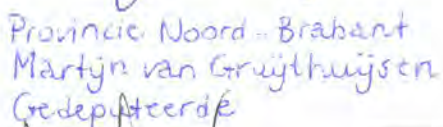 Provincie Noord-Brabant
Martijn van Gruijthuijsen
Gedeputeerde